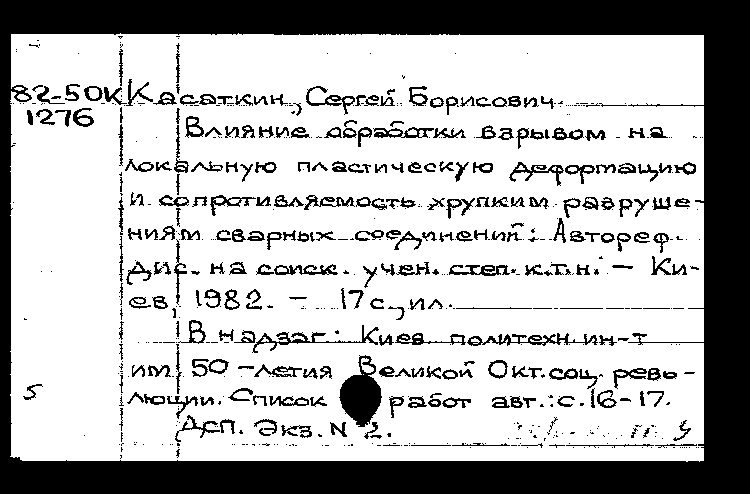 82-50К Касаткин, Сергей Борисович.
1276
Влияние обработки взрывом на
локальную пластическую деформацию
и сопротивляемость хрупким разруше-
ниям сварных соединений: Автореф.
Дис. на соиск. учен. степ. к.т.н. — Ки-
ев, 1982. — 17 с., ил.
В надзаг.: Киев. политехн. ин-т
им. 50-летия Великой Окт. соц. рево-
5 люции. Список работ авт.: с. 16-17.
Деп. Экз. N 2.